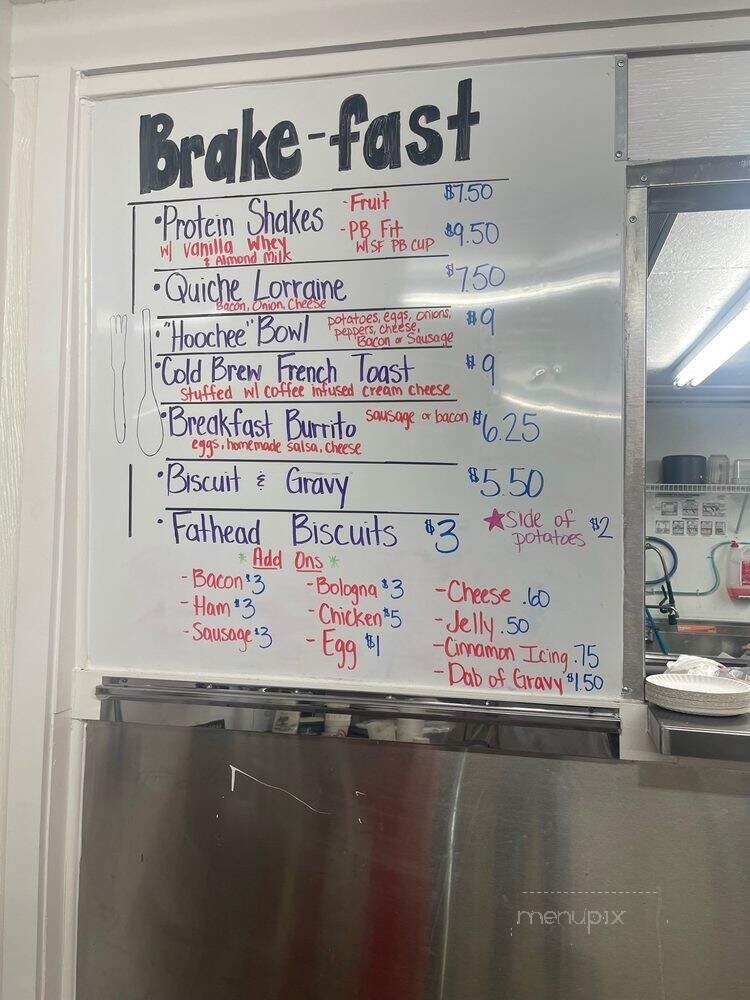 Brake-fast
• Protein Shakes - Fruit $7.50
w/ vanilla whey & Almond Milk - PB Fit w/ SF PB CUP $9.50
• Quiche Lorraine $7.50
Bacon, Onion, Cheese
• "Hoochee" Bowl potatoes, eggs, onions, peppers, cheese, Bacon or Sausage $9
• Cold Brew French Toast $9
stuffed w/ coffee infused cream cheese
• Breakfast Burrito sausage or bacon $6.25
eggs, homemade salsa, cheese
• Biscuit & Gravy $5.50
• Fathead Biscuits $3 ★ Side of potatoes $2
* Add Ons *
- Bacon $3 - Bologna $3 - Cheese .60
- Ham $3 - Chicken $5 - Jelly .50
- Sausage $3 - Egg $1 - Cinnamon Icing .75
- Dab of Gravy $1.50
menupix